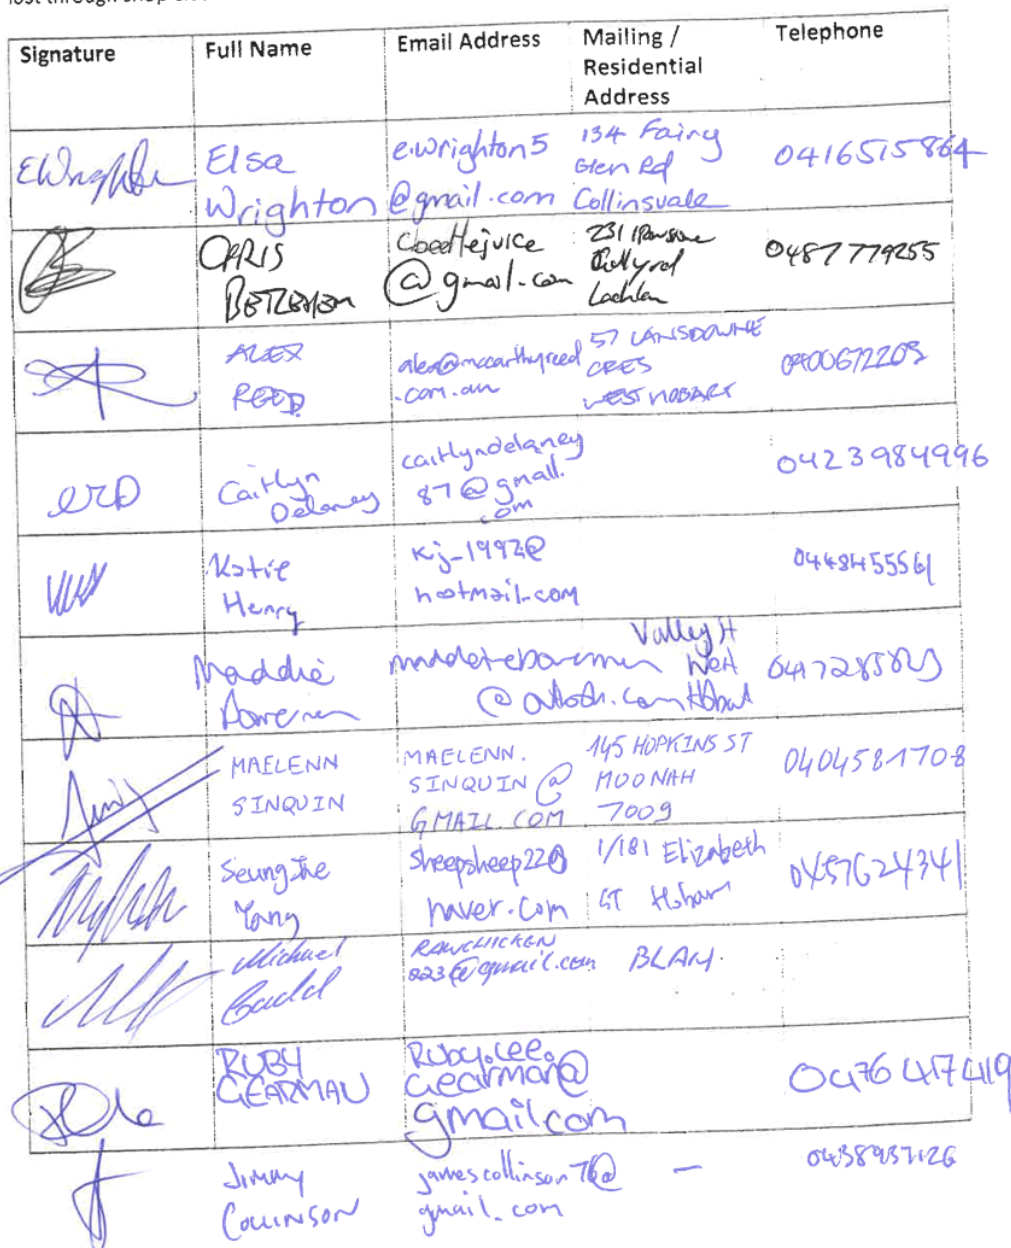 Signature Full Name Email Address Mailing /
Residential
Address Telephone
EWrighton Elsa
Wrighton e.wrighton5
@gmail.com 134 Fairy
Glen Rd
Collinsvale 0416515864
CHRIS cbeetlejuice
@gmail.com 231
Lachlan 0487779255
ALEX
REED alex@mccarthyreed
.com.au 57 LANSDOWNE
CRES
WEST HOBART 0400672209
ERD Caitlyn
Delaney caitlyndelaney
87@gmail.
com 0423984996
Katie
Henry kj_1992@
hotmail.com 0448455561
Maddie Valley St
West
Hobart
MAELENN
SINQUIN MAELENN.
SINQUIN@
GMAIL.COM 145 HOPKINS ST
MOONAH
7009 0404581708
Seungjae
Yang sheepsheep22@
naver.com 1/181 Elizabeth
ST Hobart 0457624341
Michael RAWCHICKEN
@gmail.com BLAH.
RUBY
GEARMAN Ruby.Lee.
Gearman@
gmail.com 0476417419
Jimmy
COLLINSON jamescollinson76@
gmail.com — 0438937126